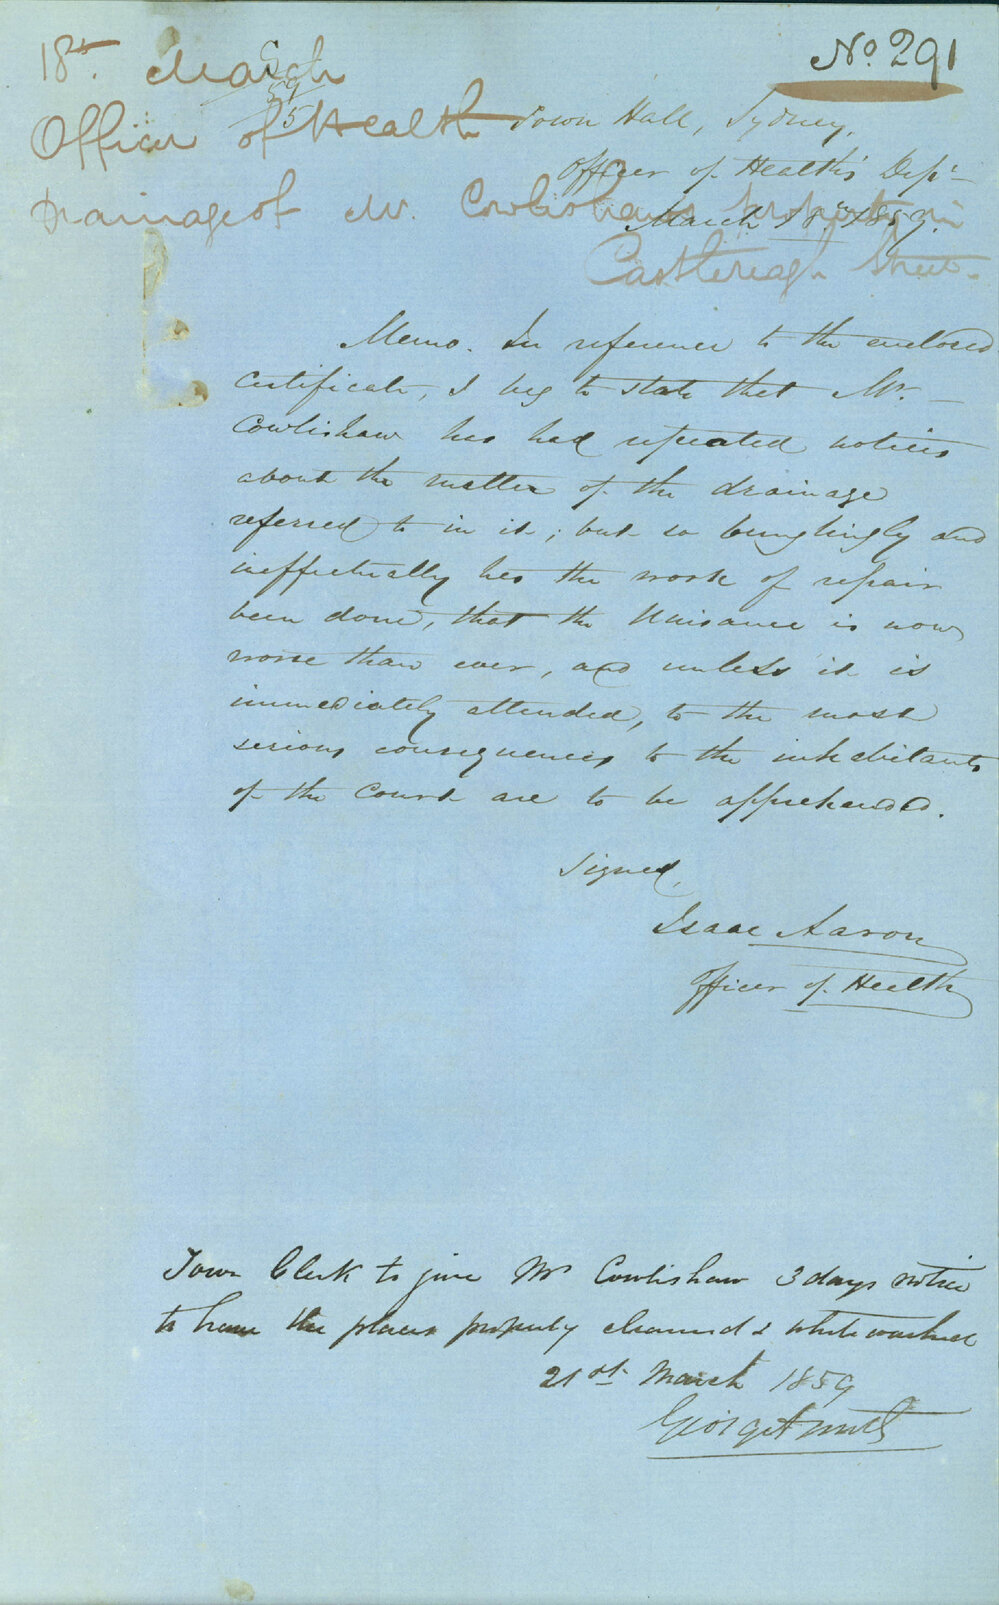 No. 291
18th. March
59
Officer of Health
Drainage of Mr. Cowlishaws property in
Castlereagh Street.
Town Hall, Sydney,
Officer of Health's Dept
March 18th. 1859.
Memo. In reference to the enclosed
certificate, I beg to state that Mr.
Cowlishaw has had repeated notices
about the matter of the drainage
referred to in it; but so bunglingly and
ineffectually has the work of repair
been done, that the Nuisance is now
worse than ever, and unless it is
immediately attended, to the most
serious consequences to the inhabitants
of the Court are to be apprehended.
Signed,
Isaac Aaron
Officer of Health
Town Clerk to give Mr Cowlishaw 3 days notice
to have the places properly cleansed & white washed
21st March 1859
George